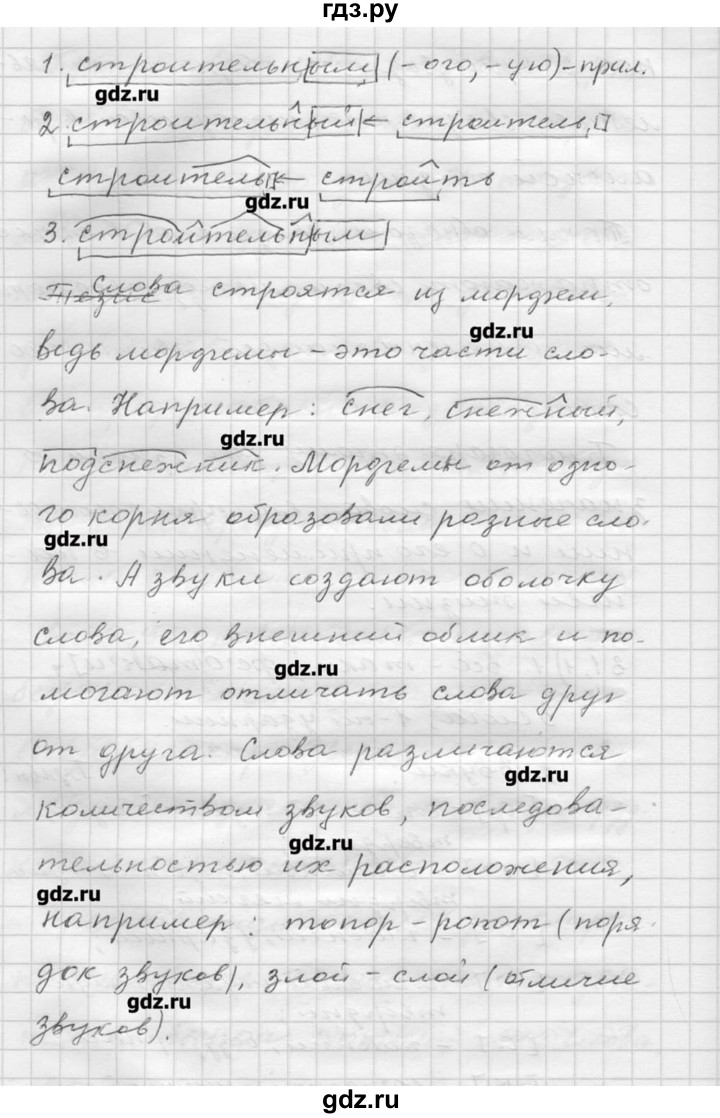 гдз.ру
1. строительным (-ого, -ую) - прил.
gdz.ru
2. строительный ← строитель
строитель ← строить
gdz.ru
3. строительным
Тезис Слова строятся из морфем,
gdz.ru
ведь морфемы - это части сло-
ва. Например: снег, снежный,
gdz.ru
подснежник. Морфемы от одно-
го корня образовали разные сло-
gdz.ru
ва. А звуки создают оболочку
слова, его внешний облик и по-
gdz.ru
могают отличать слова друг
от друга. Слова различаются
gdz.ru
количеством звуков, последова-
gdz.ru
тельностью их расположения,
gdz.ru
например: топор - ропот (поря
док звуков), злой - слой (отличие
gdz.ru
звуков).
gdz.ru